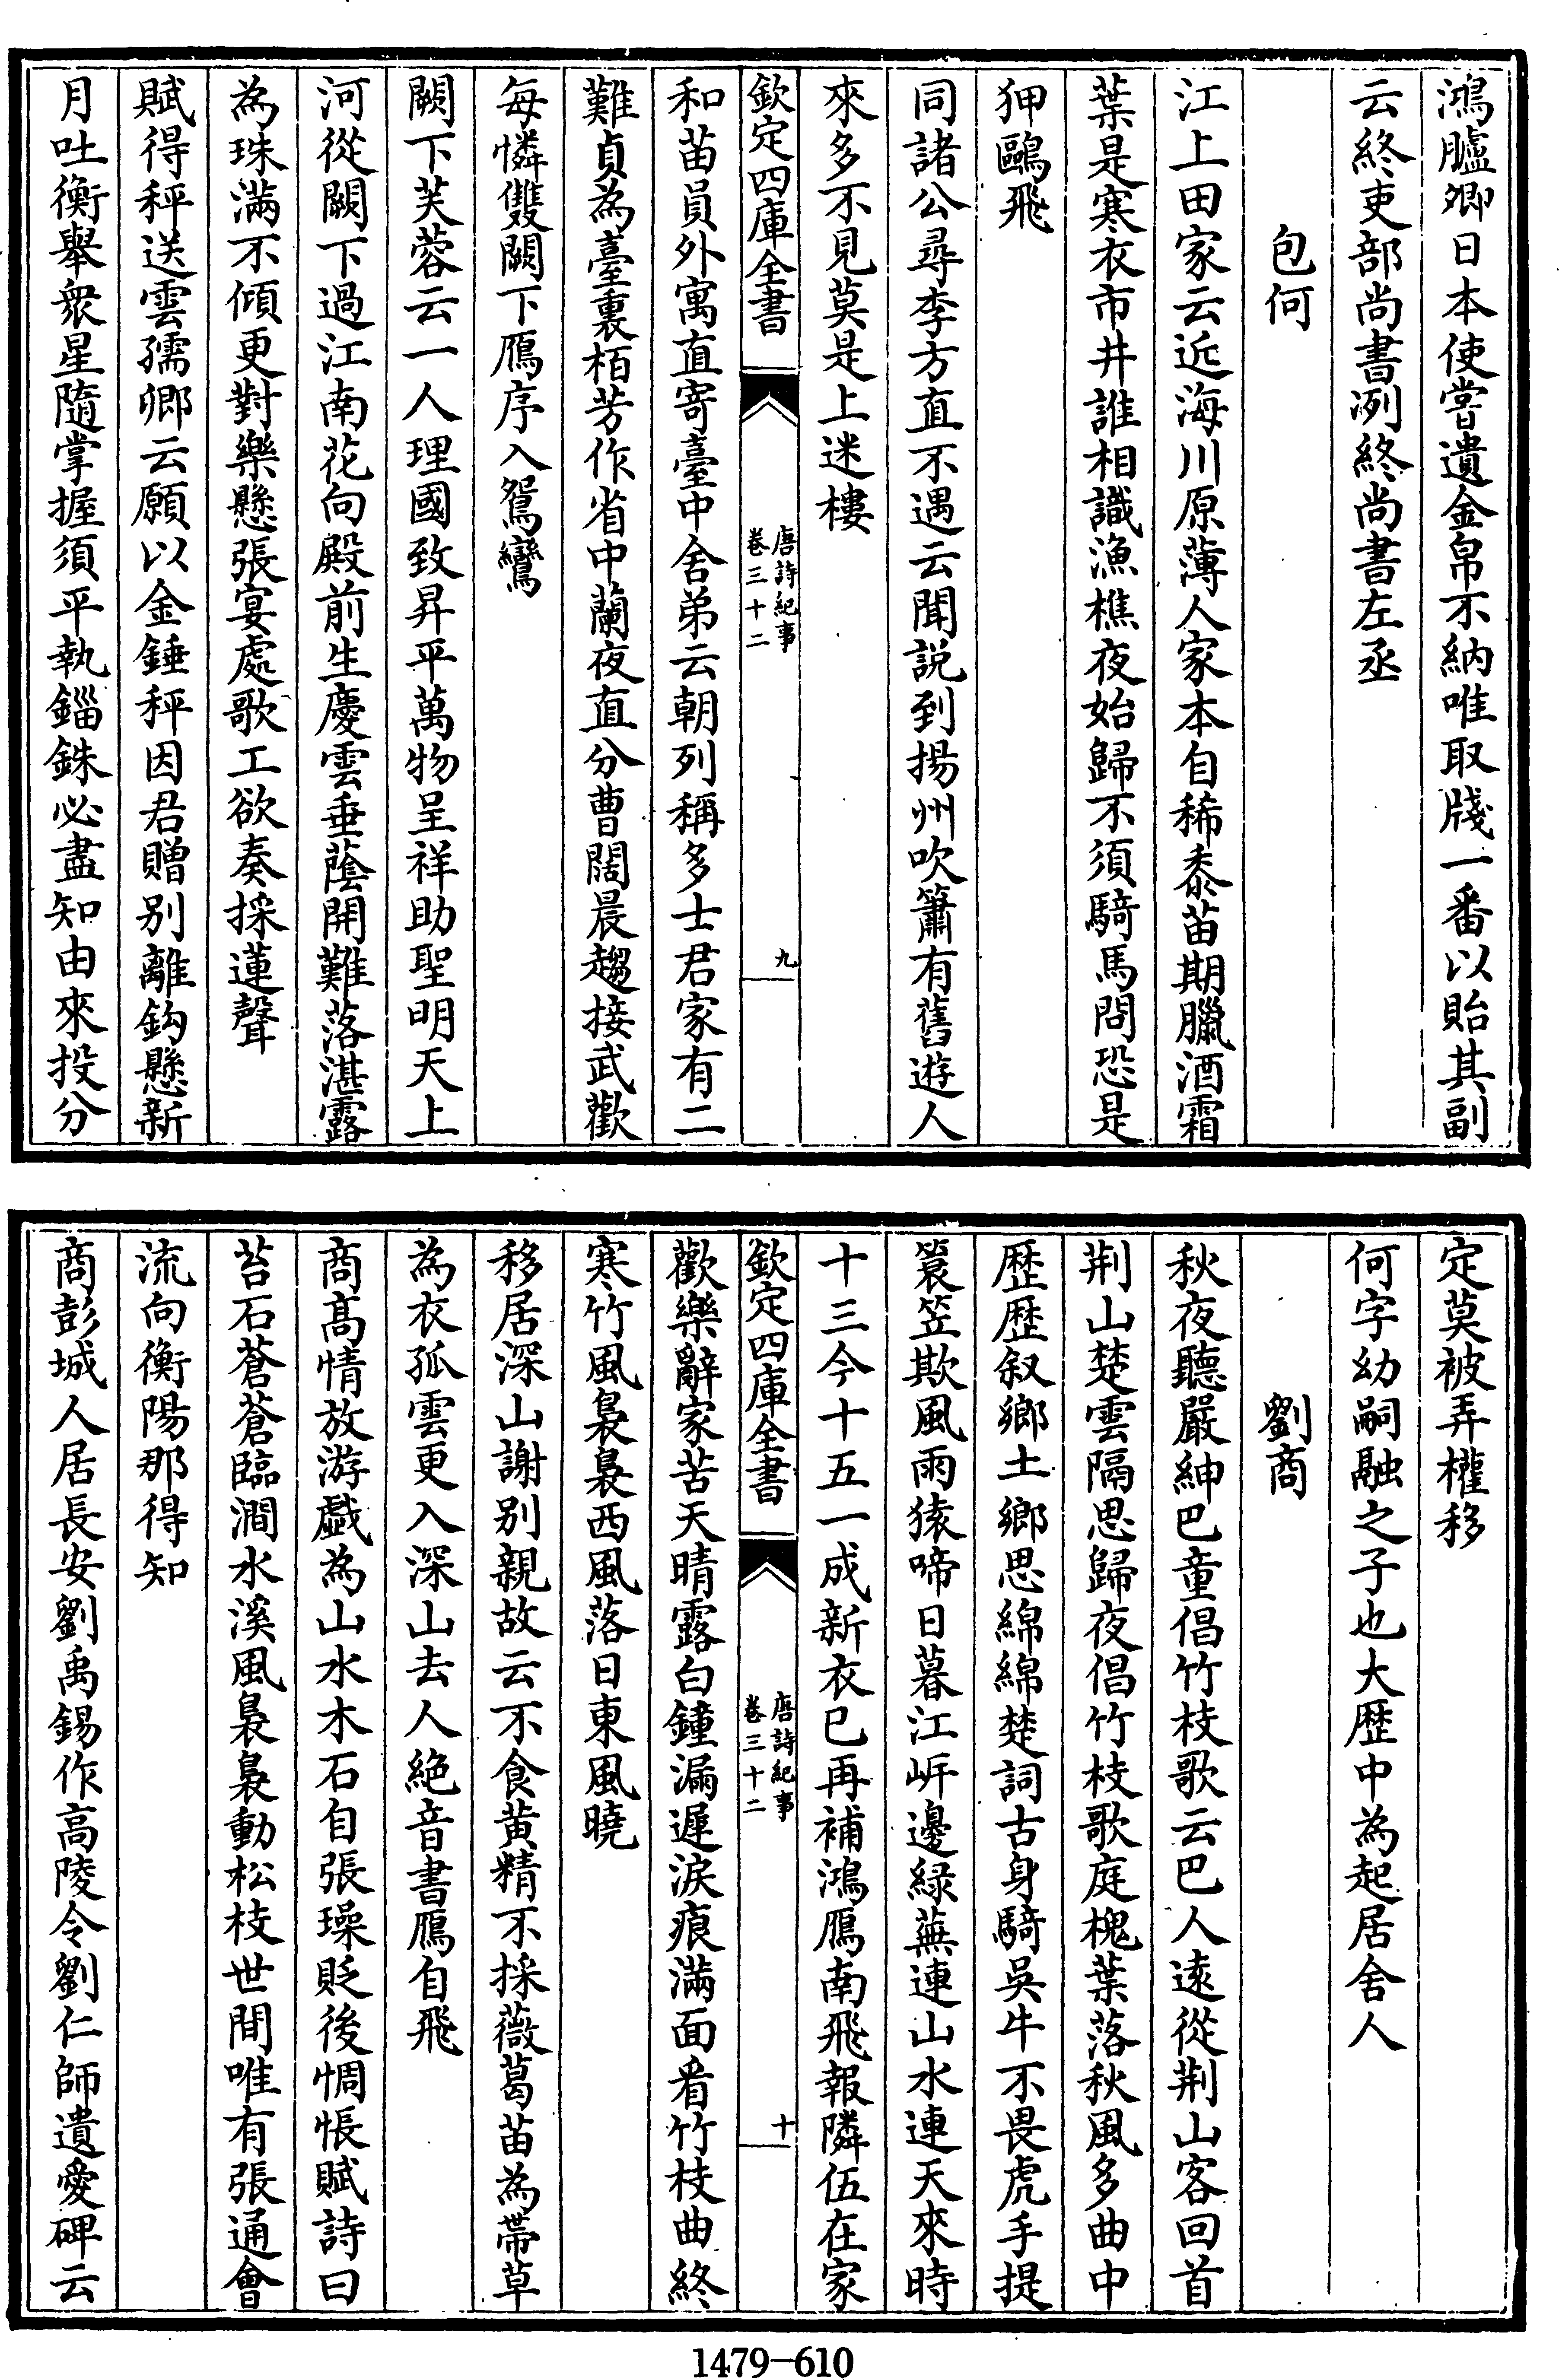 鴻臚卿日本使嘗遺金帛不納唯取牋一番以貽其副
云終吏部尚書洌終尚書左丞
包何
江上田家云近海川原薄人家本自稀黍苗期臘酒霜
葉是寒衣市井誰相識漁樵夜始歸不須騎馬問恐是
狎鷗飛
同諸公尋李方直不遇云聞説到揚州吹簫有舊遊人
來多不見莫是上迷樓
欽定四庫全書
唐詩紀事
卷三十二
九
和苗員外寓直寄臺中舍弟云朝列稱多士君家有二
難貞為臺裏栢芳作省中蘭夜直分曹闊晨趨接武歡
每憐雙闕下鴈序入鴛鸞
闕下芙蓉云一人理國致昇平萬物呈祥助聖明天上
河從闕下過江南花向殿前生慶雲垂蔭開難落湛露
為珠滿不傾更對樂懸張宴處歌工欲奏採蓮聲
賦得秤送雲孺卿云願以金錘秤因君贈别離鈎懸新
月吐衡舉衆星隨掌握須平執錙銖必盡知由來投分
定莫被弄權移
何字幼嗣融之子也大歴中為起居舍人
劉商
秋夜聽嚴紳巴童倡竹枝歌云巴人遠從荆山客回首
荆山楚雲隔思歸夜倡竹枝歌庭槐葉落秋風多曲中
歴歴叙鄉土鄉思綿綿楚詞古身騎吳牛不畏虎手提
簑笠欺風雨猿啼日暮江岍邊緑蕪連山水連天來時
十三今十五一成新衣巳再補鴻鴈南飛報隣伍在家
欽定四庫全書
唐詩紀事
卷三十二
十
歡樂辭家苦天晴露白鐘漏遲淚痕滿面看竹枝曲終
寒竹風裊裊西風落日東風曉
移居深山謝别親故云不食黄精不採薇葛苗為帶草
為衣孤雲更入深山去人絶音書鴈自飛
商髙情放游戲為山水木石自張璪貶後惆悵賦詩曰
苔石蒼蒼臨澗水溪風裊裊動松枝世間唯有張通會
流向衡陽那得知
商彭城人居長安劉禹錫作高陵令劉仁師遺愛碑云
1479—610